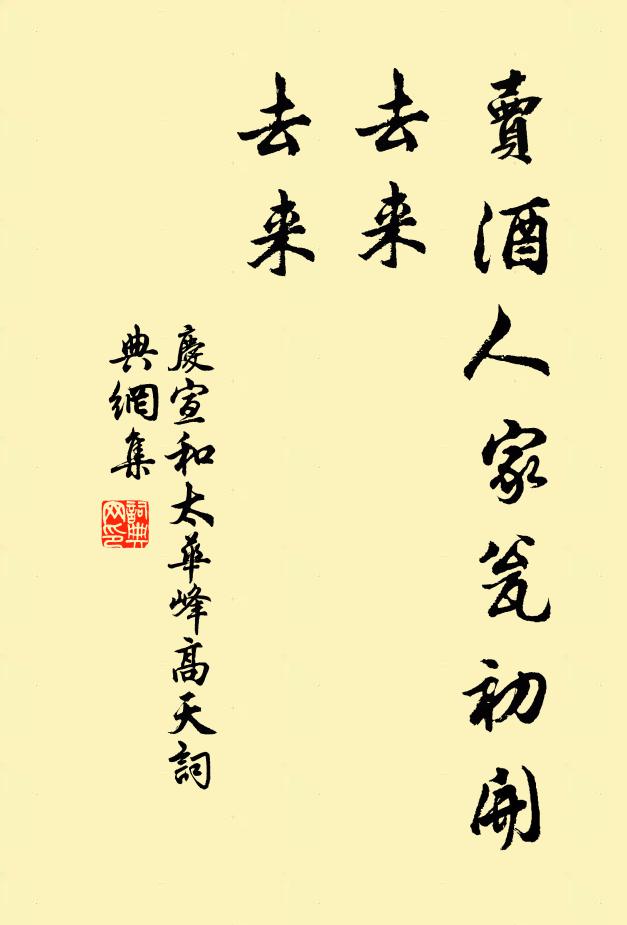 賣酒人家瓮初開
去来
去来
慶宣和太華峰高天詞
典網集
詞典网印